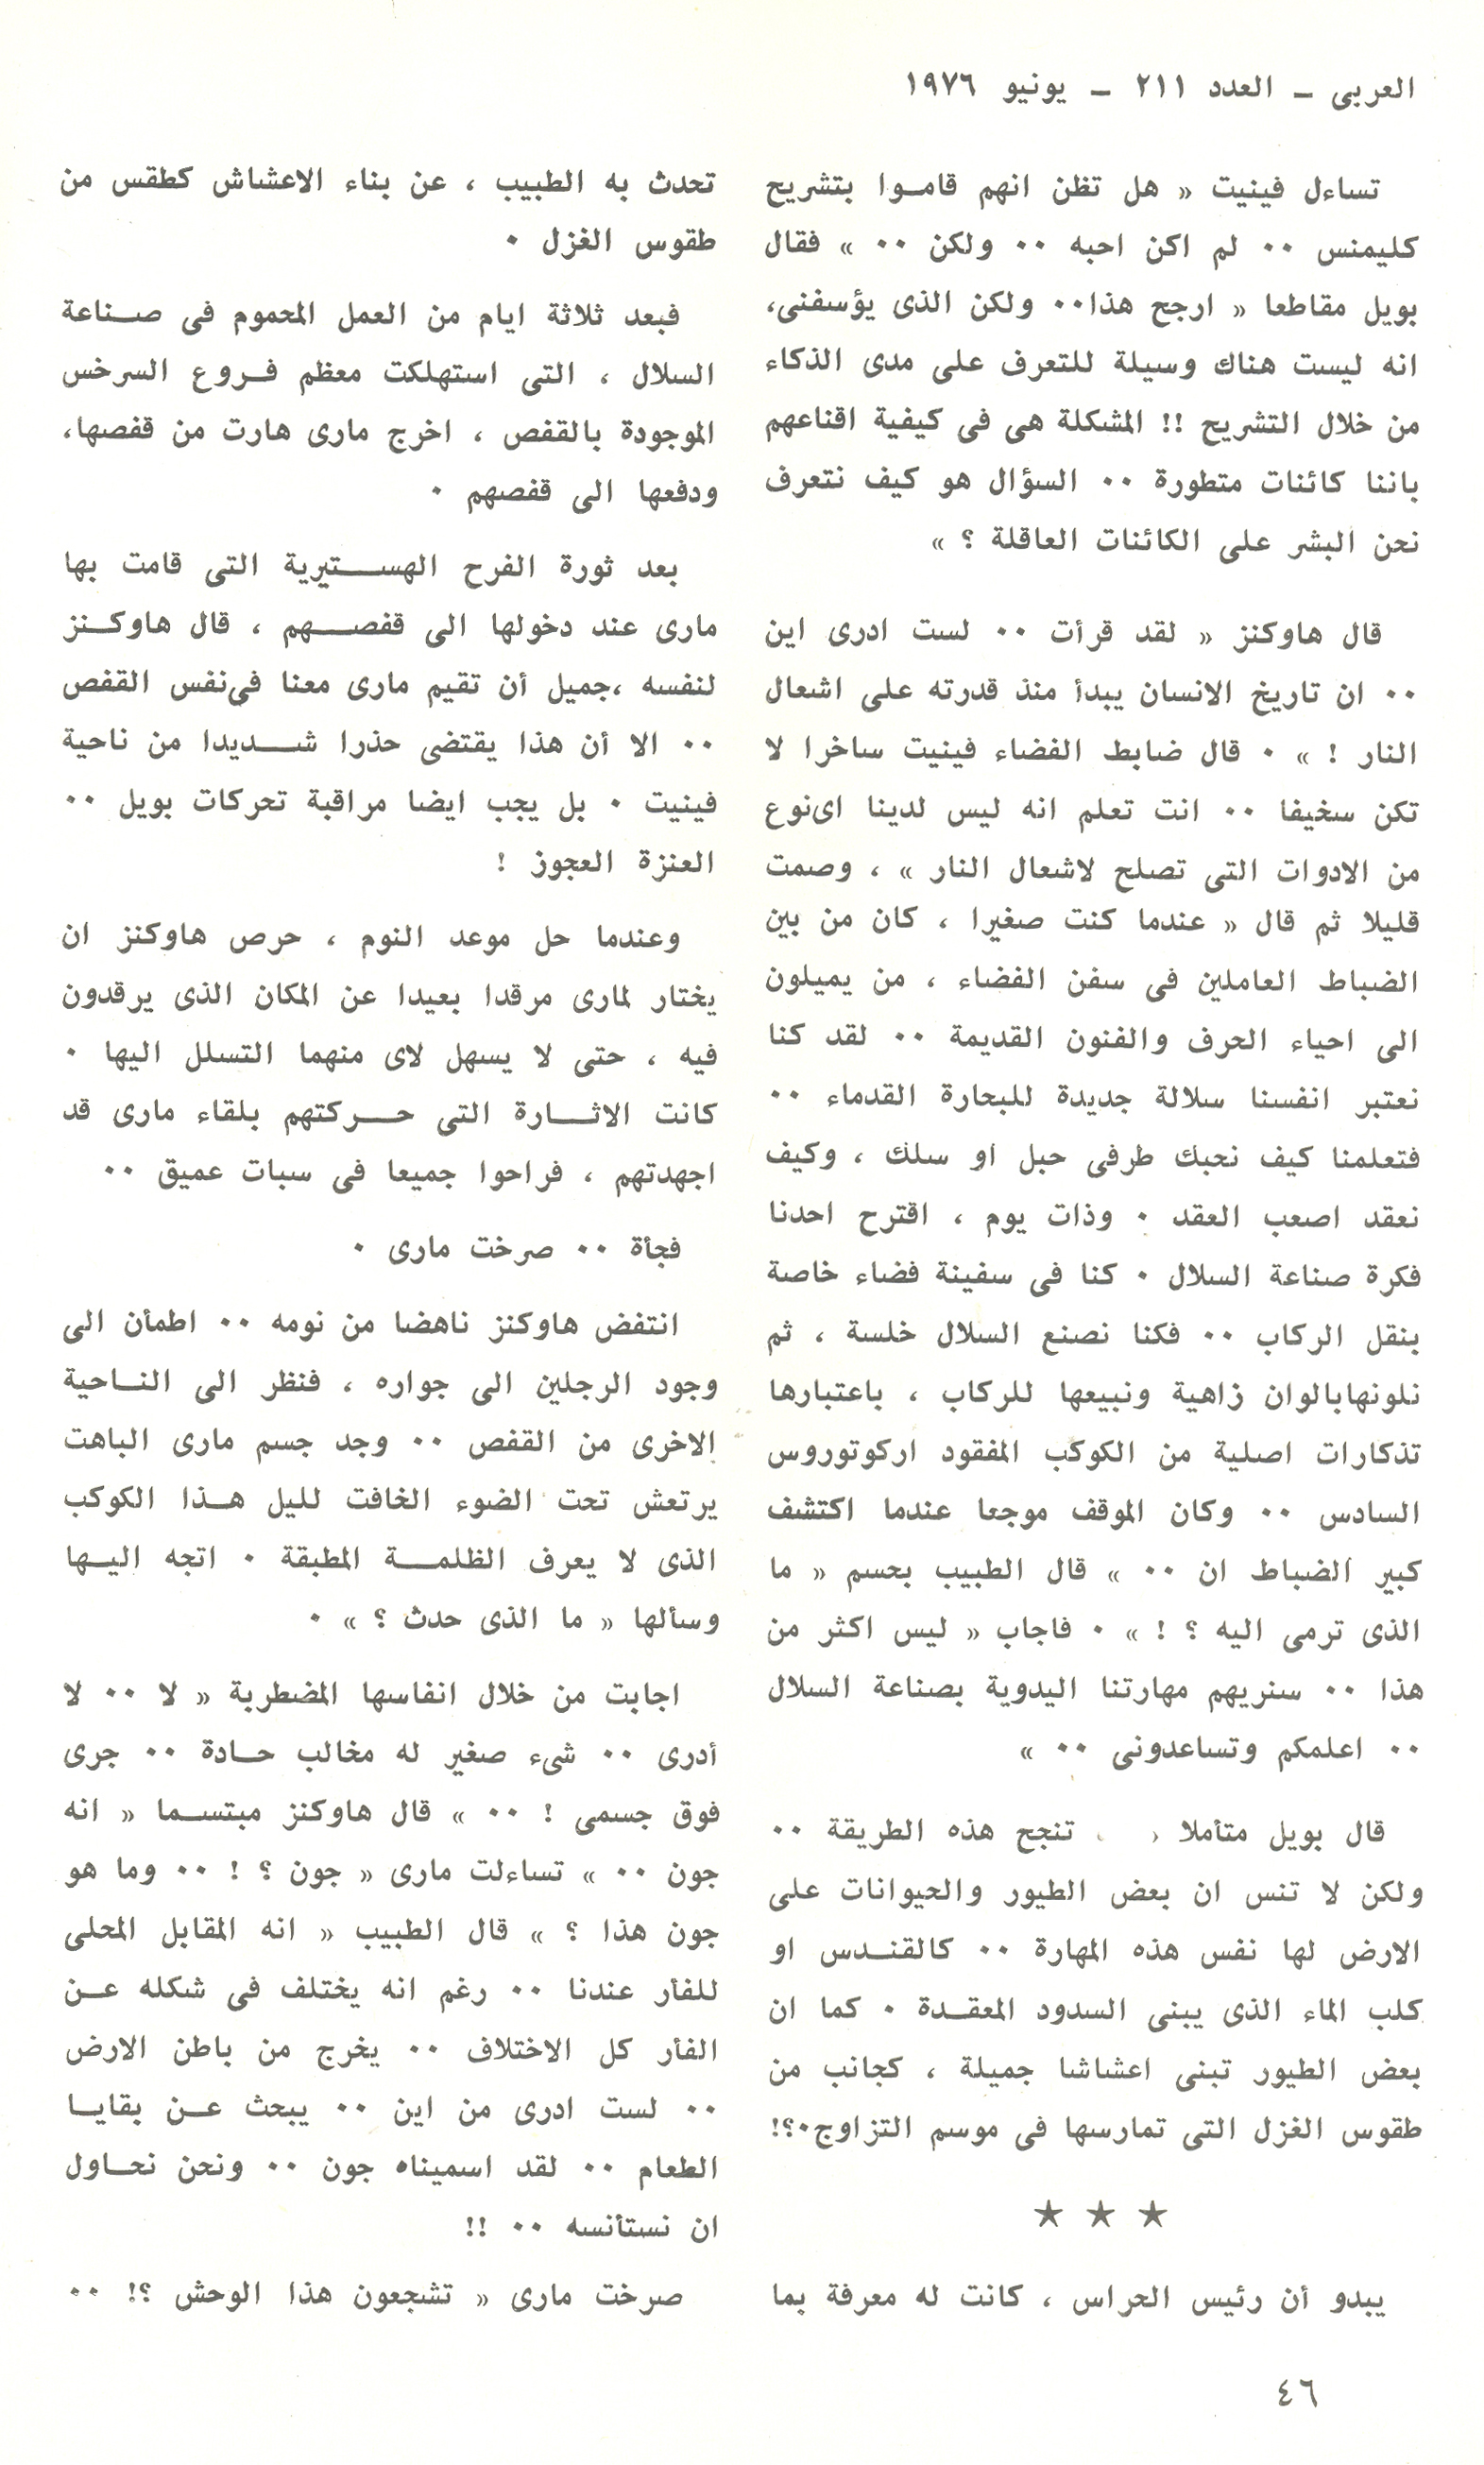 العربى – العدد ٢١١ – يونيو ١٩٧٦
تساءل فينيت « هل تظن انهم قاموا بتشريح
كليمنس ٠٠ لم اكن احبه ٠٠ ولكن ٠٠ » فقال
بويل مقاطعا « ارجح هذا٠٠ ولكن الذى يؤسفنى،
انه ليست هناك وسيلة للتعرف على مدى الذكاء
من خلال التشريح !! المشكلة هى فى كيفية اقناعهم
باننا كائنات متطورة ٠٠ السؤال هو كيف نتعرف
نحن البشر على الكائنات العاقلة ؟ »
قال هاوكنز « لقد قرأت ٠٠ لست ادرى اين
٠٠ ان تاريخ الانسان يبدأ منذ قدرته على اشعال
النار ! » ٠ قال ضابط الفضاء فينيت ساخرا لا
تكن سخيفا ٠٠ انت تعلم انه ليس لدينا اى نوع
من الادوات التى تصلح لاشعال النار » ، وصمت
قليلا ثم قال « عندما كنت صغيرا ، كان من بين
الضباط العاملين فى سفن الفضاء ، من يميلون
الى احياء الحرف والفنون القديمة ٠٠ لقد كنا
نعتبر انفسنا سلالة جديدة للبحارة القدماء ٠٠
فتعلمنا كيف نحبك طرفى حبل او سلك ، وكيف
نعقد اصعب العقد ٠ وذات يوم ، اقترح احدنا
فكرة صناعة السلال ٠ كنا فى سفينة فضاء خاصة
بنقل الركاب ٠٠ فكنا نصنع السلال خلسة ، ثم
نلونها بالوان زاهية ونبيعها للركاب ، باعتبارها
تذكارات اصلية من الكوكب المفقود اركوتوروس
السادس ٠٠ وكان الموقف موجعا عندما اكتشف
كبير الضباط ان ٠٠ » قال الطبيب بحسم « ما
الذى ترمى اليه ؟ ! » ٠ فاجاب « ليس اكثر من
هذا ٠٠ سنريهم مهارتنا اليدوية بصناعة السلال
٠٠ اعلمكم وتساعدونى ٠٠ »
قال بويل متأملا تنجح هذه الطريقة ٠٠
ولكن لا تنس ان بعض الطيور والحيوانات على
الارض لها نفس هذه المهارة ٠٠ كالقندس او
كلب الماء الذى يبنى السدود المعقدة ٠ كما ان
بعض الطيور تبنى اعشاشا جميلة ، كجانب من
طقوس الغزل التى تمارسها فى موسم التزاوج٠؟!
★ ★ ★
يبدو أن رئيس الحراس ، كانت له معرفة بما
تحدث به الطبيب ، عن بناء الاعشاش كطقس من
طقوس الغزل ٠
فبعد ثلاثة ايام من العمل المحموم فى صناعة
السلال ، التى استهلكت معظم فروع السرخس
الموجودة بالقفص ، اخرج مارى هارت من قفصها،
ودفعها الى قفصهم ٠
بعد ثورة الفرح الهستيرية التى قامت بها
مارى عند دخولها الى قفصهم ، قال هاوكنز
لنفسه ،جميل أن تقيم مارى معنا فى نفس القفص
٠٠ الا أن هذا يقتضى حذرا شديدا من ناحية
فينيت ٠ بل يجب ايضا مراقبة تحركات بويل ٠٠
العنزة العجوز !
وعندما حل موعد النوم ، حرص هاوكنز ان
يختار لمارى مرقدا بعيدا عن المكان الذى يرقدون
فيه ، حتى لا يسهل لاى منهما التسلل اليها ٠
كانت الاثارة التى حركتهم بلقاء مارى قد
اجهدتهم ، فراحوا جميعا فى سبات عميق ٠٠
فجأة ٠٠ صرخت مارى ٠
انتفض هاوكنز ناهضا من نومه ٠٠ اطمأن الى
وجود الرجلين الى جواره ، فنظر الى الناحية
الاخرى من القفص ٠٠ وجد جسم مارى الباهت
يرتعش تحت الضوء الخافت لليل هذا الكوكب
الذى لا يعرف الظلمة المطبقة ٠ اتجه اليها
وسألها « ما الذى حدث ؟ » ٠
اجابت من خلال انفاسها المضطربة « لا ٠٠ لا
أدرى ٠٠ شىء صغير له مخالب حادة ٠٠ جرى
فوق جسمى ! ٠٠ » قال هاوكنز مبتسما « انه
جون ٠٠ » تساءلت مارى « جون ؟ ! ٠٠ وما هو
جون هذا ؟ » قال الطبيب « انه المقابل المحلى
للفأر عندنا ٠٠ رغم انه يختلف فى شكله عن
الفأر كل الاختلاف ٠٠ يخرج من باطن الارض
٠٠ لست ادرى من اين ٠٠ يبحث عن بقايا
الطعام ٠٠ لقد اسميناه جون ٠٠ ونحن نحاول
ان نستأنسه ٠٠ !!
صرخت مارى « تشجعون هذا الوحش ؟! ٠٠
٤٦